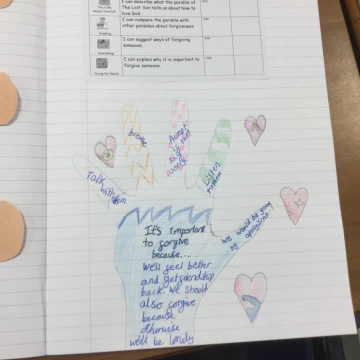 I can describe what the parable of
The Lost Son tells us about how to
love God.
I can compare the parable with
other parables about forgiveness.
I can suggest ways of forgiving
someone.
I can explain why it is important to
forgive someone.
Talk with them
Accept
Listen
It's important
to forgive
because...
We'll feel better
and get friendship
back. We should
also forgive
because
otherwise
we'll be lonely